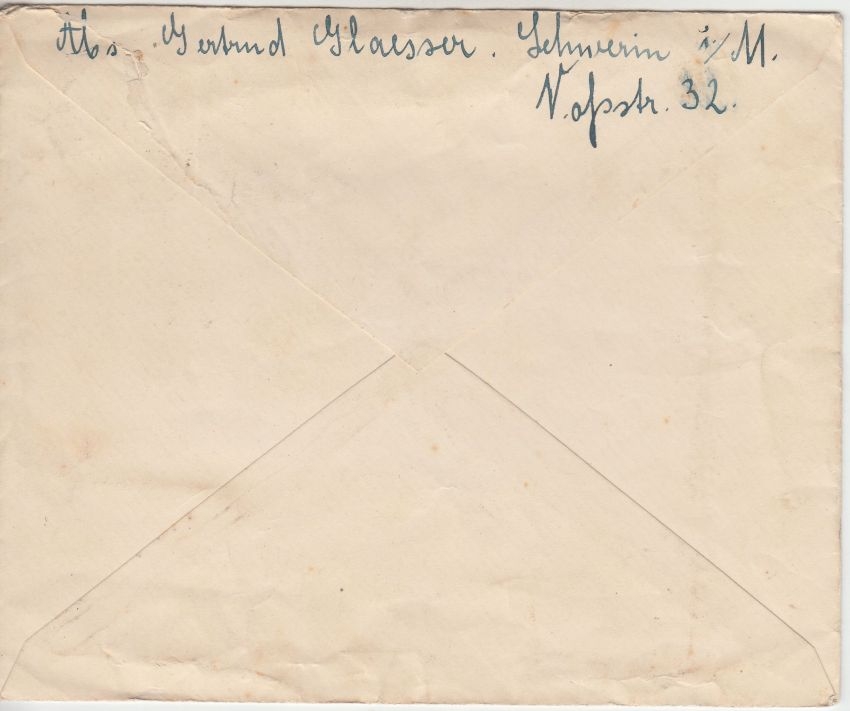 Abs. Gertrud Glaesser. Schwerin i/M.
Voßstr. 32.